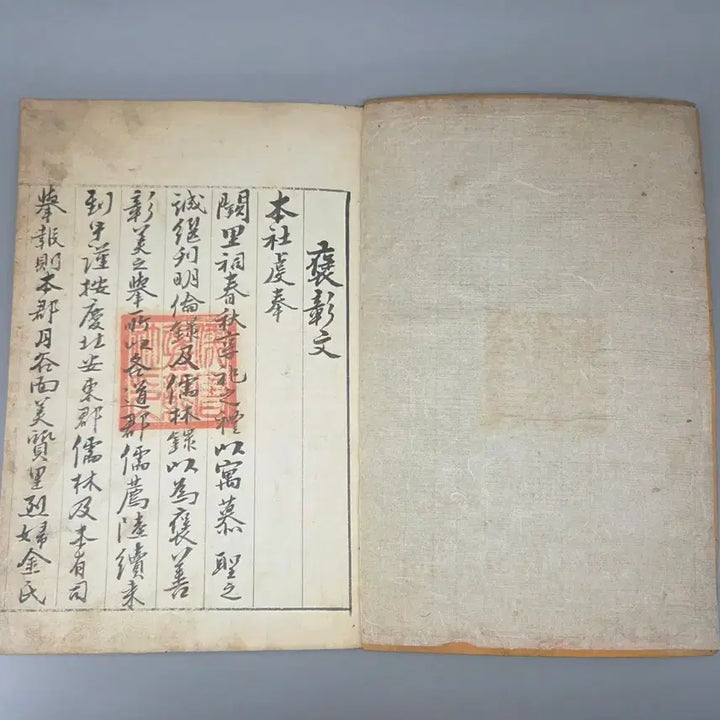 褒彰文
本社虔奉
闕里祠春秋享祀之禮以寓慕聖之
誠繼刊明倫錄及儒林錄以為褒善
彰美之擧所以各道郡儒薦陸續来
到乎謹按慶北安東郡儒林及本有司
擧報則本郡月谷面美質里烈婦金氏